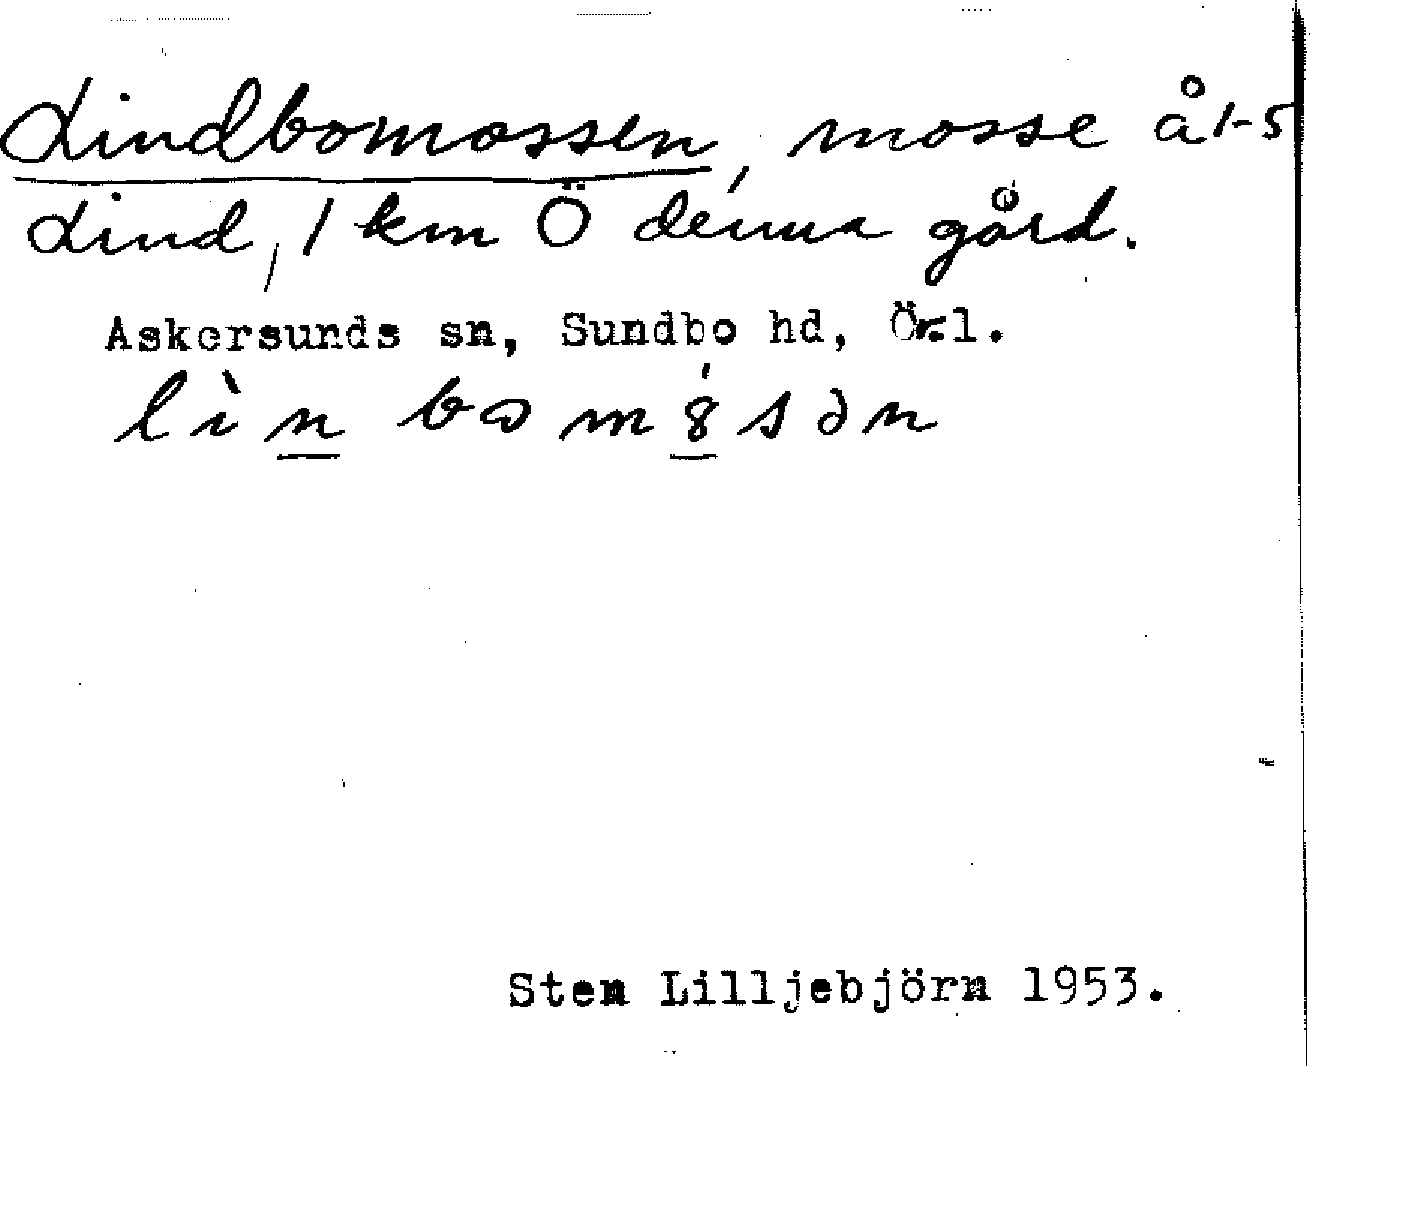 Lindbomossen, mosse å 1-5
Lind, 1 km Ö denna gård.
Askersunds sn, Sundbo hd, Ör.l.
lìn bωm8́sən
Sten Lilljebjörn 1953.